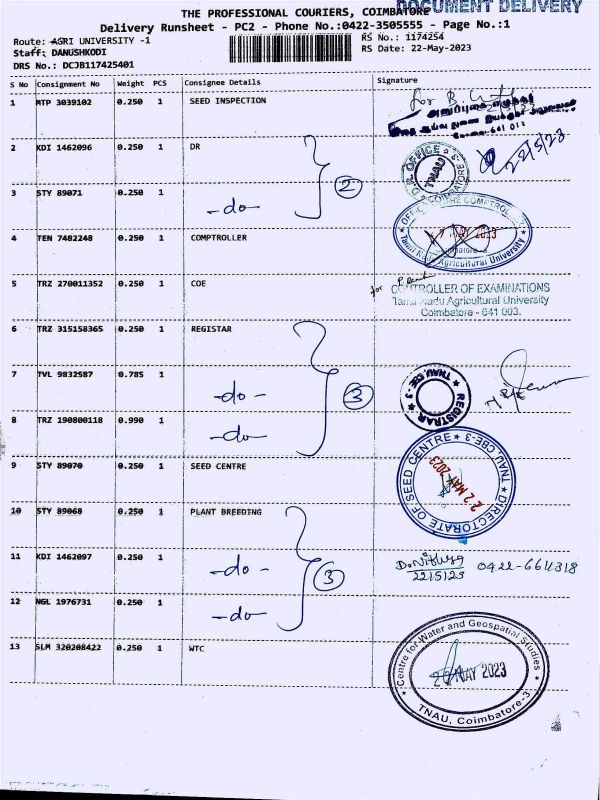 DOCUMENT DELIVERY
THE PROFESSIONAL COURIERS, COIMBATORE
Delivery Runsheet - PC2 - Phone No.:0422-3505555 - Page No.:1
Route: AGRI UNIVERSITY -1
RS No.: 1174254
Staff: DANUSHKODI
RS Date: 22-May-2023
DRS No.: DCJB117425401
S No Consignment No Weight PCS Consignee Details Signature
1 MTP 3039102 0.250 1 SEED INSPECTION
for B.
641 013
2 KDI 1462096 0.250 1 DR
D.R. OFFICE
TNAU
COIMBATORE-3
22/5/23
3 STY 89071 0.250 1 -do- 2
4 TEN 7482248 0.250 1 COMPTROLLER
OFFICE OF THE COMPTROLLER
MAY 2023
Tamil Nadu Agricultural University
5 TRZ 270011352 0.250 1 COE
for
CONTROLLER OF EXAMINATIONS
Tamil Nadu Agricultural University
Coimbatore - 641 003.
6 TRZ 315158365 0.250 1 REGISTAR
7 TVL 9832587 0.785 1 -do- 3
REGISTRAR
TNAU, CBE-3
8 TRZ 190800118 0.990 1 -do-
9 STY 89070 0.250 1 SEED CENTRE
DIRECTORATE OF SEED CENTRE
TNAU, CBE-3
22 MAY 2023
10 STY 89068 0.250 1 PLANT BREEDING
11 KDI 1462097 0.250 1 -do- 3
D.Nithya 0422-6611318
22/5/23
12 NGL 1976731 0.250 1 -do-
13 SLM 320208422 0.250 1 WTC
Centre for Water and Geospatial Studies
MAY 2023
TNAU, Coimbatore-3